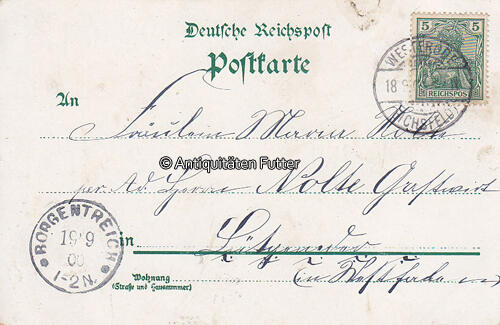 Deutsche Reichspost
Postkarte
5 5
REICHSPOST
WESTEROD
18 9
EICHSFELD
An
Fräulein Maria
© Antiquitäten Futter
per Ad. Herrn Nolte Gastwirt
BORGENTREICH
19 9
00
1-2N.
in Lütgeneder
in Westfalen
Wohnung
(Straße und Hausnummer)